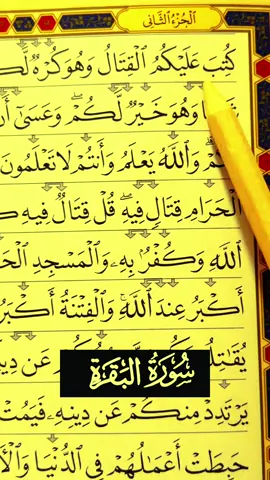 الجزء الثاني
كُتِبَ عَلَيْكُمُ الْقِتَالُ وَهُوَ كُرْهٌ
وَهُوَ خَيْرٌ لَّكُمْ ۖ وَعَسَىٰ
وَاللَّهُ يَعْلَمُ وَأَنتُمْ لَا تَعْلَمُونَ
الْحَرَامِ قِتَالٍ فِيهِ ۖ قُلْ قِتَالٌ فِيهِ
اللَّهِ وَكُفْرٌ بِهِ وَالْمَسْجِدِ
أَكْبَرُ عِندَ اللَّهِ ۚ وَالْفِتْنَةُ أَكْبَرُ
عَن
سُورَةُ الْبَقَرَةِ
يَرْتَدِدْ مِنكُمْ عَن دِينِهِ فَيَمُتْ
حَبِطَتْ أَعْمَالُهُمْ فِي الدُّنْيَا